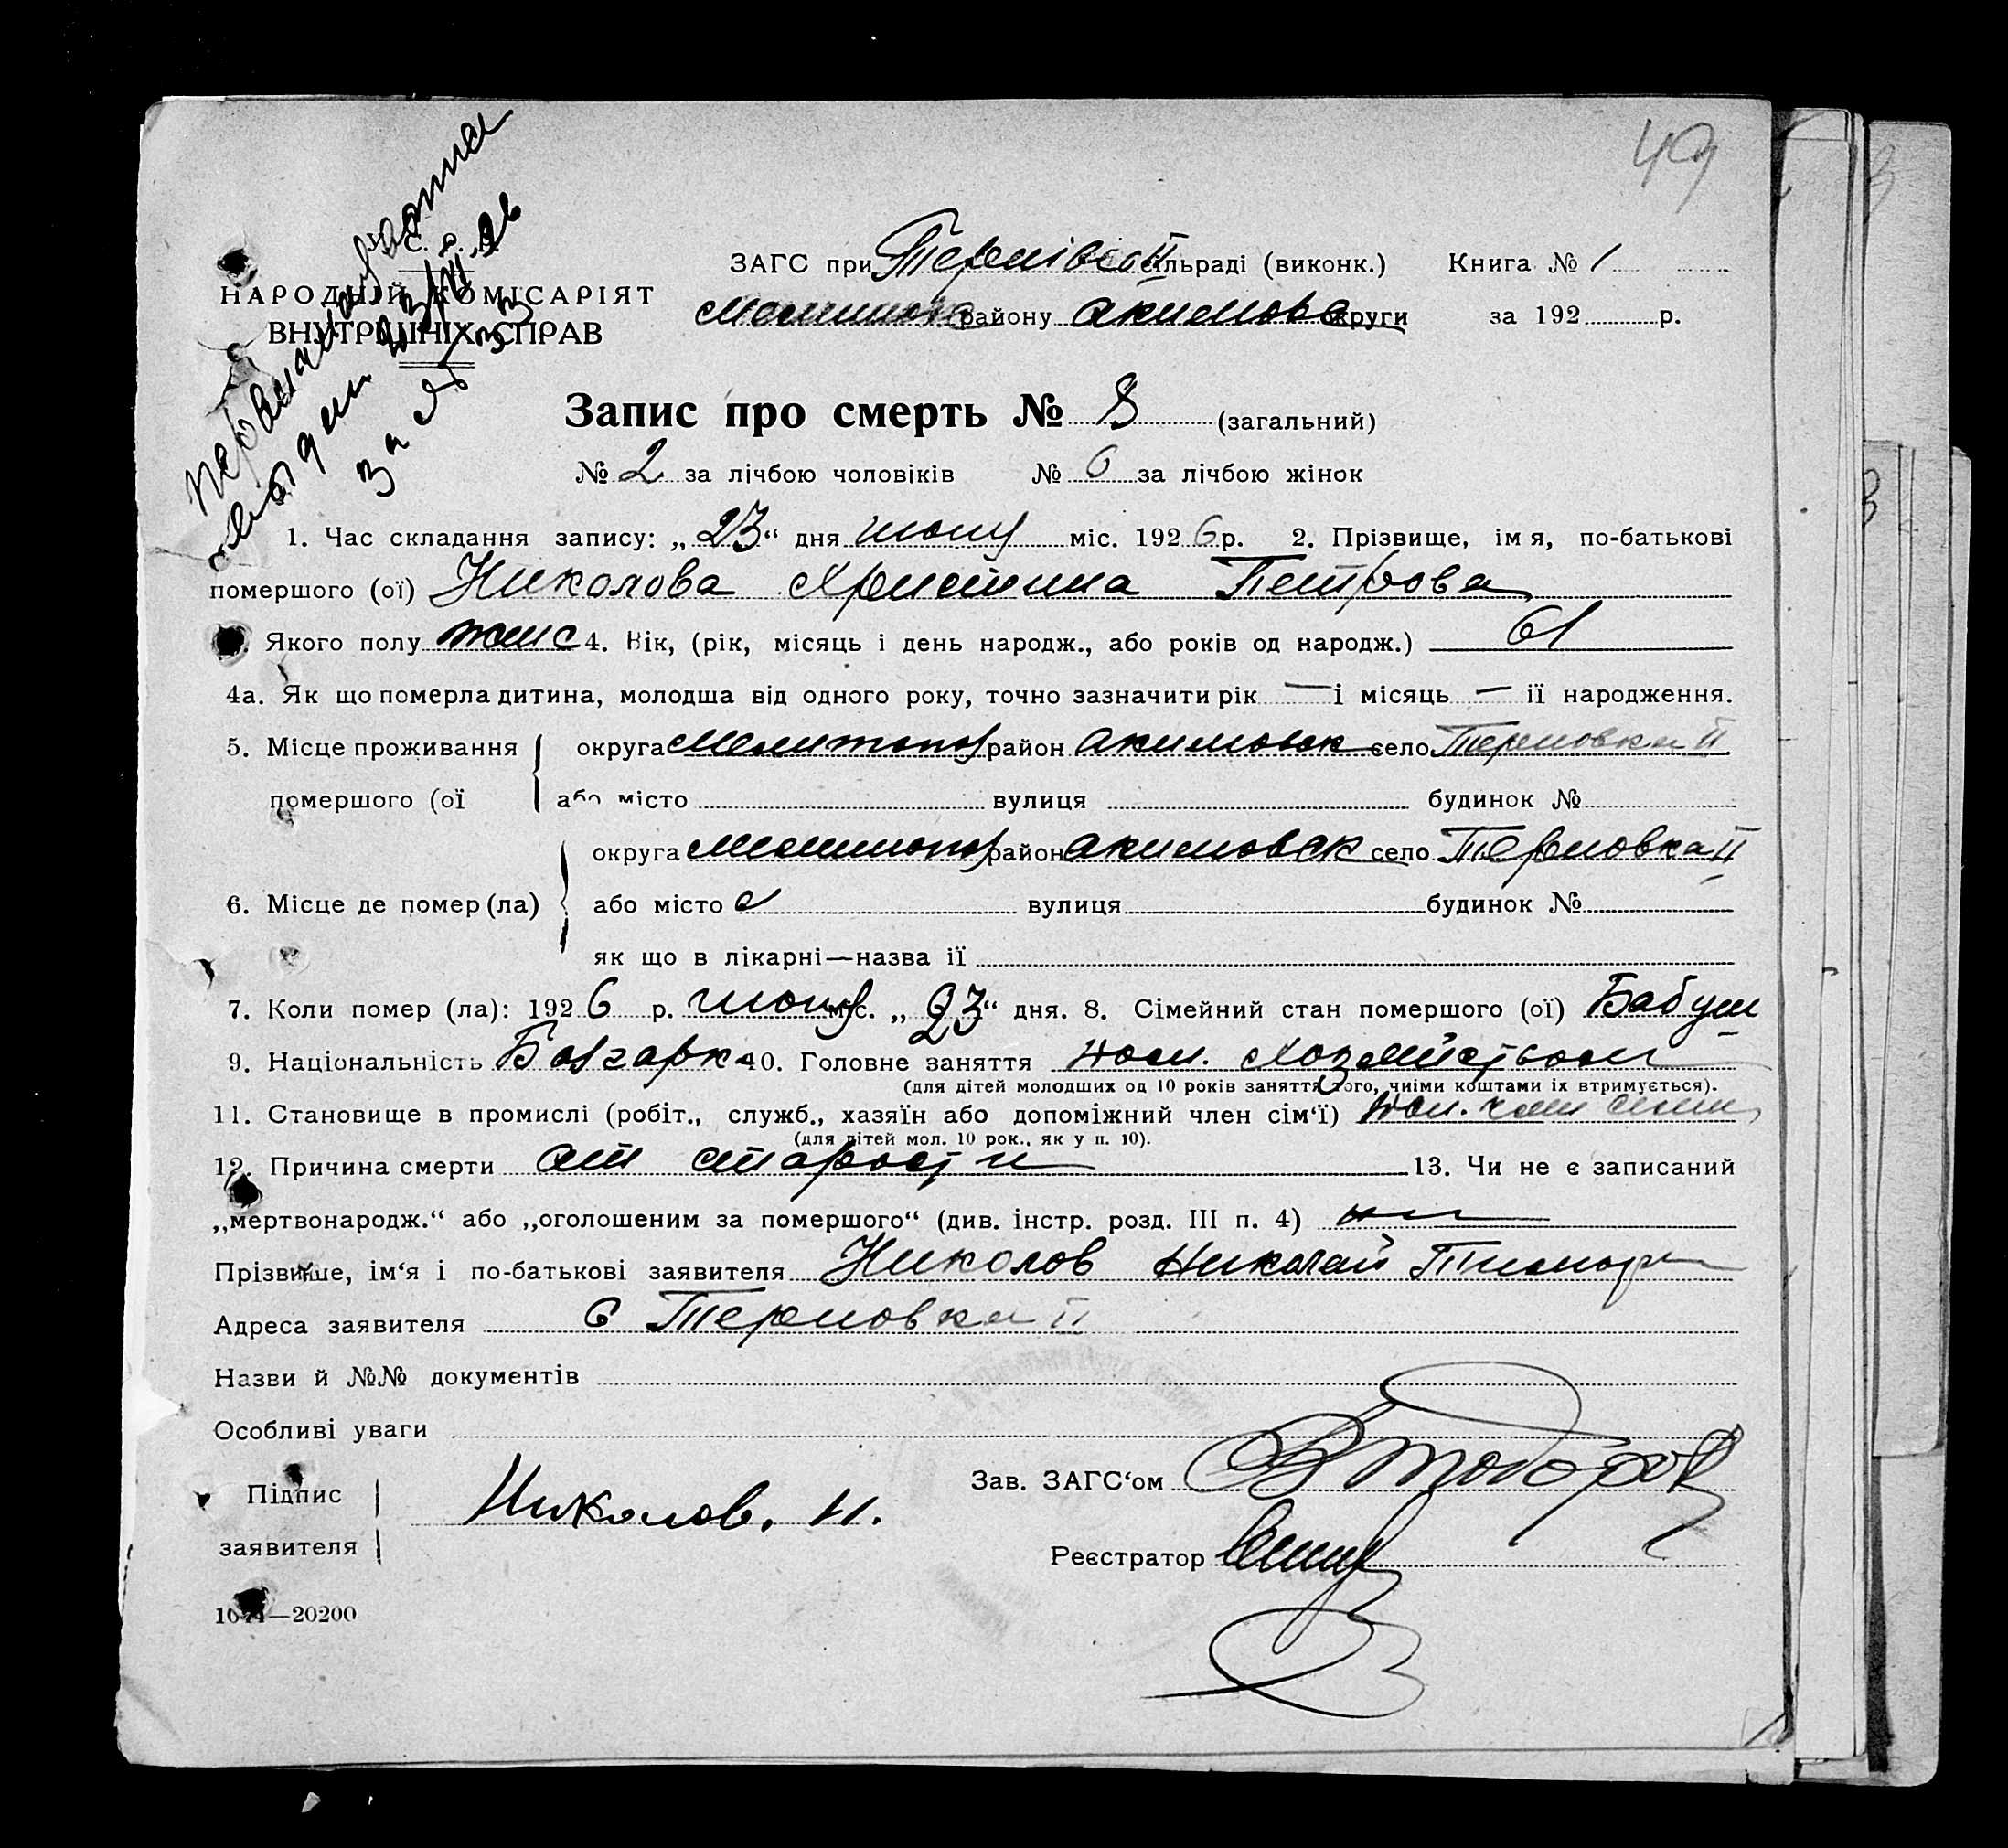 49
С. Р. Р.
НАРОДНІЙ КОМІСАРІЯТ
ВНУТРІШНІХ СПРАВ
за № 33
ЗАГС при сільраді (виконк.) Книга № 1
району округи за 192 р.
Запис про смерть № 8 (загальний)
№ 2 за лічбою чоловіків № 6 за лічбою жінок
1. Час складання запису: „23“ дня июня міс. 1926 р. 2. Прізвище, імя, по-батькові
помершого (ої) Николова Християна Петрова
Якого полу женс 4. Вік, (рік, місяць і день народж., або років од народж.) 61
4а. Як що померла дитина, молодша від одного року, точно зазначити рік — і місяць — її народження.
5. Місце проживання округа Мелитопол район Акимовск село Терновка II
помершого (ої або місто вулиця будинок №
округа Мелитопол район Акимовск село Терновка II
6. Місце де помер (ла) або місто вулиця будинок №
як що в лікарні—назва її
7. Коли помер (ла): 1926 р. июня міс. „23“ дня. 8. Сімейний стан помершого (ої)
9. Національність Болгарка 10. Головне заняття
(для дітей молодших од 10 років заняття того, чиїми коштами їх втримується).
11. Становище в промислі (робіт., служб., хазяїн або допоміжний член сім‘ї)
(для дітей мол. 10 рок., як у п. 10).
12. Причина смерти от старости 13. Чи не є записаний
„мертвонародж.“ або „оголошеним за помершого“ (див. інстр. розд. III п. 4)
Прізвище, ім‘я і по-батькові заявителя Николов Николай
Адреса заявителя с Терновка II
Назви й №№ документів
Особливі уваги
Підпис Николов. Н. Зав. ЗАГС‘ом
заявителя Реєстратор
—20200